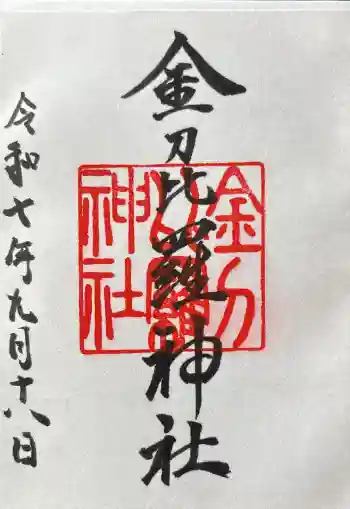 金刀比羅神社
金刀比羅神社
令和七年九月十八日